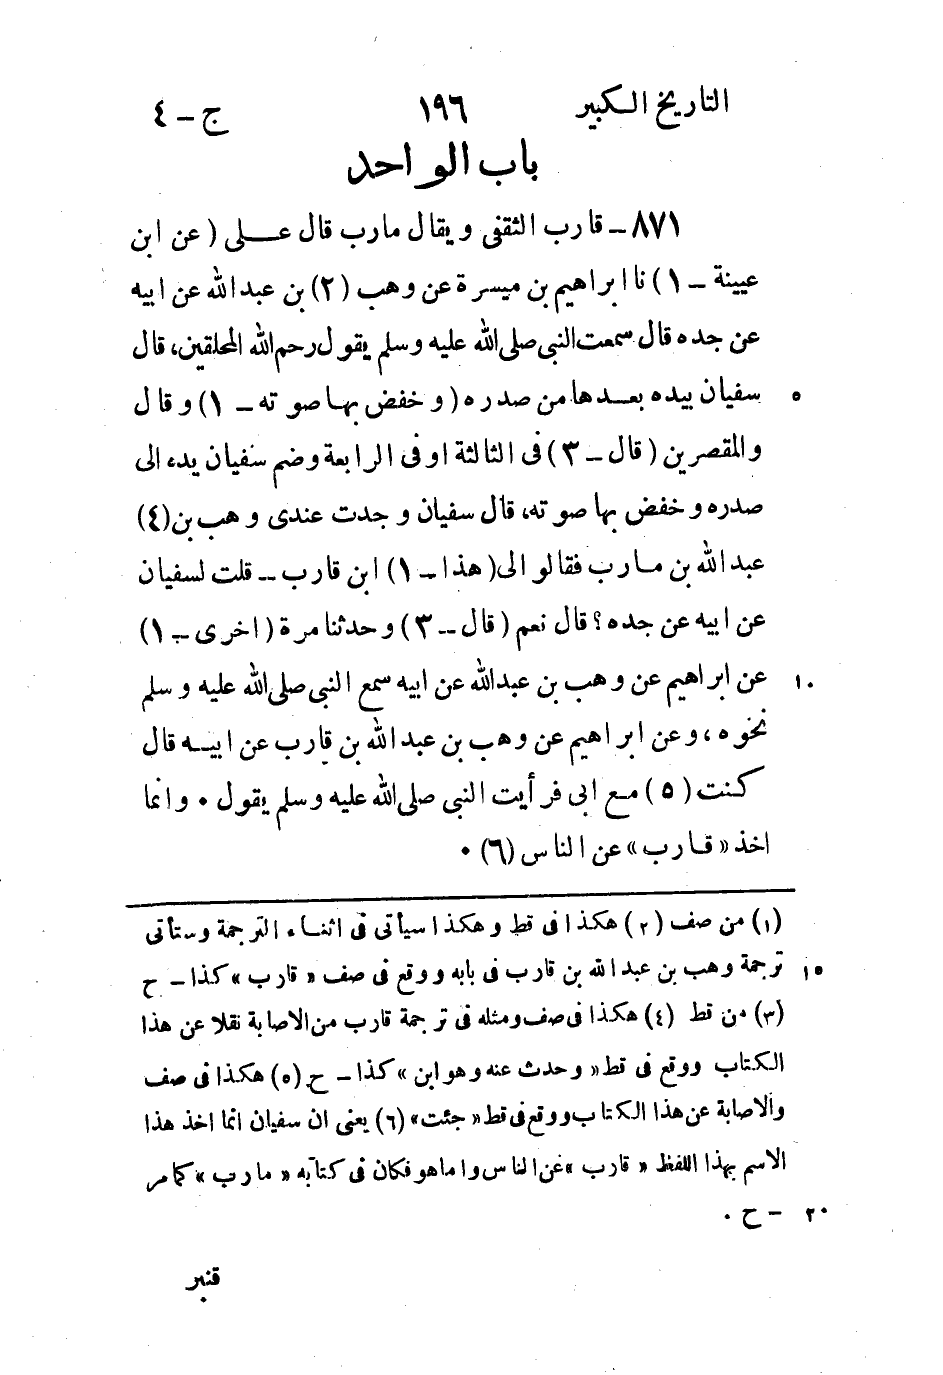 التاريخ الكبير ١٩٦ ج - ٤
باب الواحد
٨٧١ - قارب الثقفى ويقال مارب قال عـلى ( عن ابن
عيينة - ١ ) نا ابراهيم بن ميسرة عن وهب (٢) بن عبدالله عن ابيه
عن جده قال سمعت النبى صلى الله عليه وسلم يقول رحم الله المحلقين، قال
سفيان بيده بعـدها من صدره ( وخفض بهـا صوته - ١ ) وقال ٥
والمقصرين ( قال - ٣ ) فى الثالثة او فى الرابعة وضم سفيان يده الى
صدره وخفض بها صوته، قال سفيان وجدت عندى وهب بن (٤)
عبدالله بن مـارب فقالوا لى ( هذا - ١ ) ابن قارب - قلت لسفيان
عن ابيه عن جده ؟ قال نعم ( قال - ٣ ) وحدثنا مرة ( اخرى - ١ )
عن ابراهيم عن وهب بن عبدالله عن ابيه سمع النبى صلى الله عليه وسلم ١٠
نحوه ، وعن ابراهيم عن وهب بن عبدالله بن قارب عن ابيـه قال
كـنت ( ٥ ) مـع ابى فرأيت النبى صلى الله عليه وسلم يقول ٠ وانما
اخذ « قـارب » عن الناس (٦) ٠
(١) من صف (٢) هكذا فى قط وهكذا سيأتى فى اثنـاء الترجمة وستأتى
ترجمة وهب بن عبدالله بن قارب فى بابه ووقع فى صف « قارب » كذا - ح ١٥
(٣) من قط (٤) هكذا فى صف ومثله فى ترجمة قارب من الاصابة نقلا عن هذا
الكتاب ووقع فى قط « وحدث عنه وهو ابن » كذا - ح (٥) هكذا فى صف
والاصابة عن هذا الكتاب ووقع فى قط « جئت » (٦) يعنى ان سفيان انما اخذ هذا
الاسم بهذا اللفظ « قارب » عن الناس واما هو فكان فى كتابه « مارب » كما مر
- ح ٠ ٢٠
قنبر